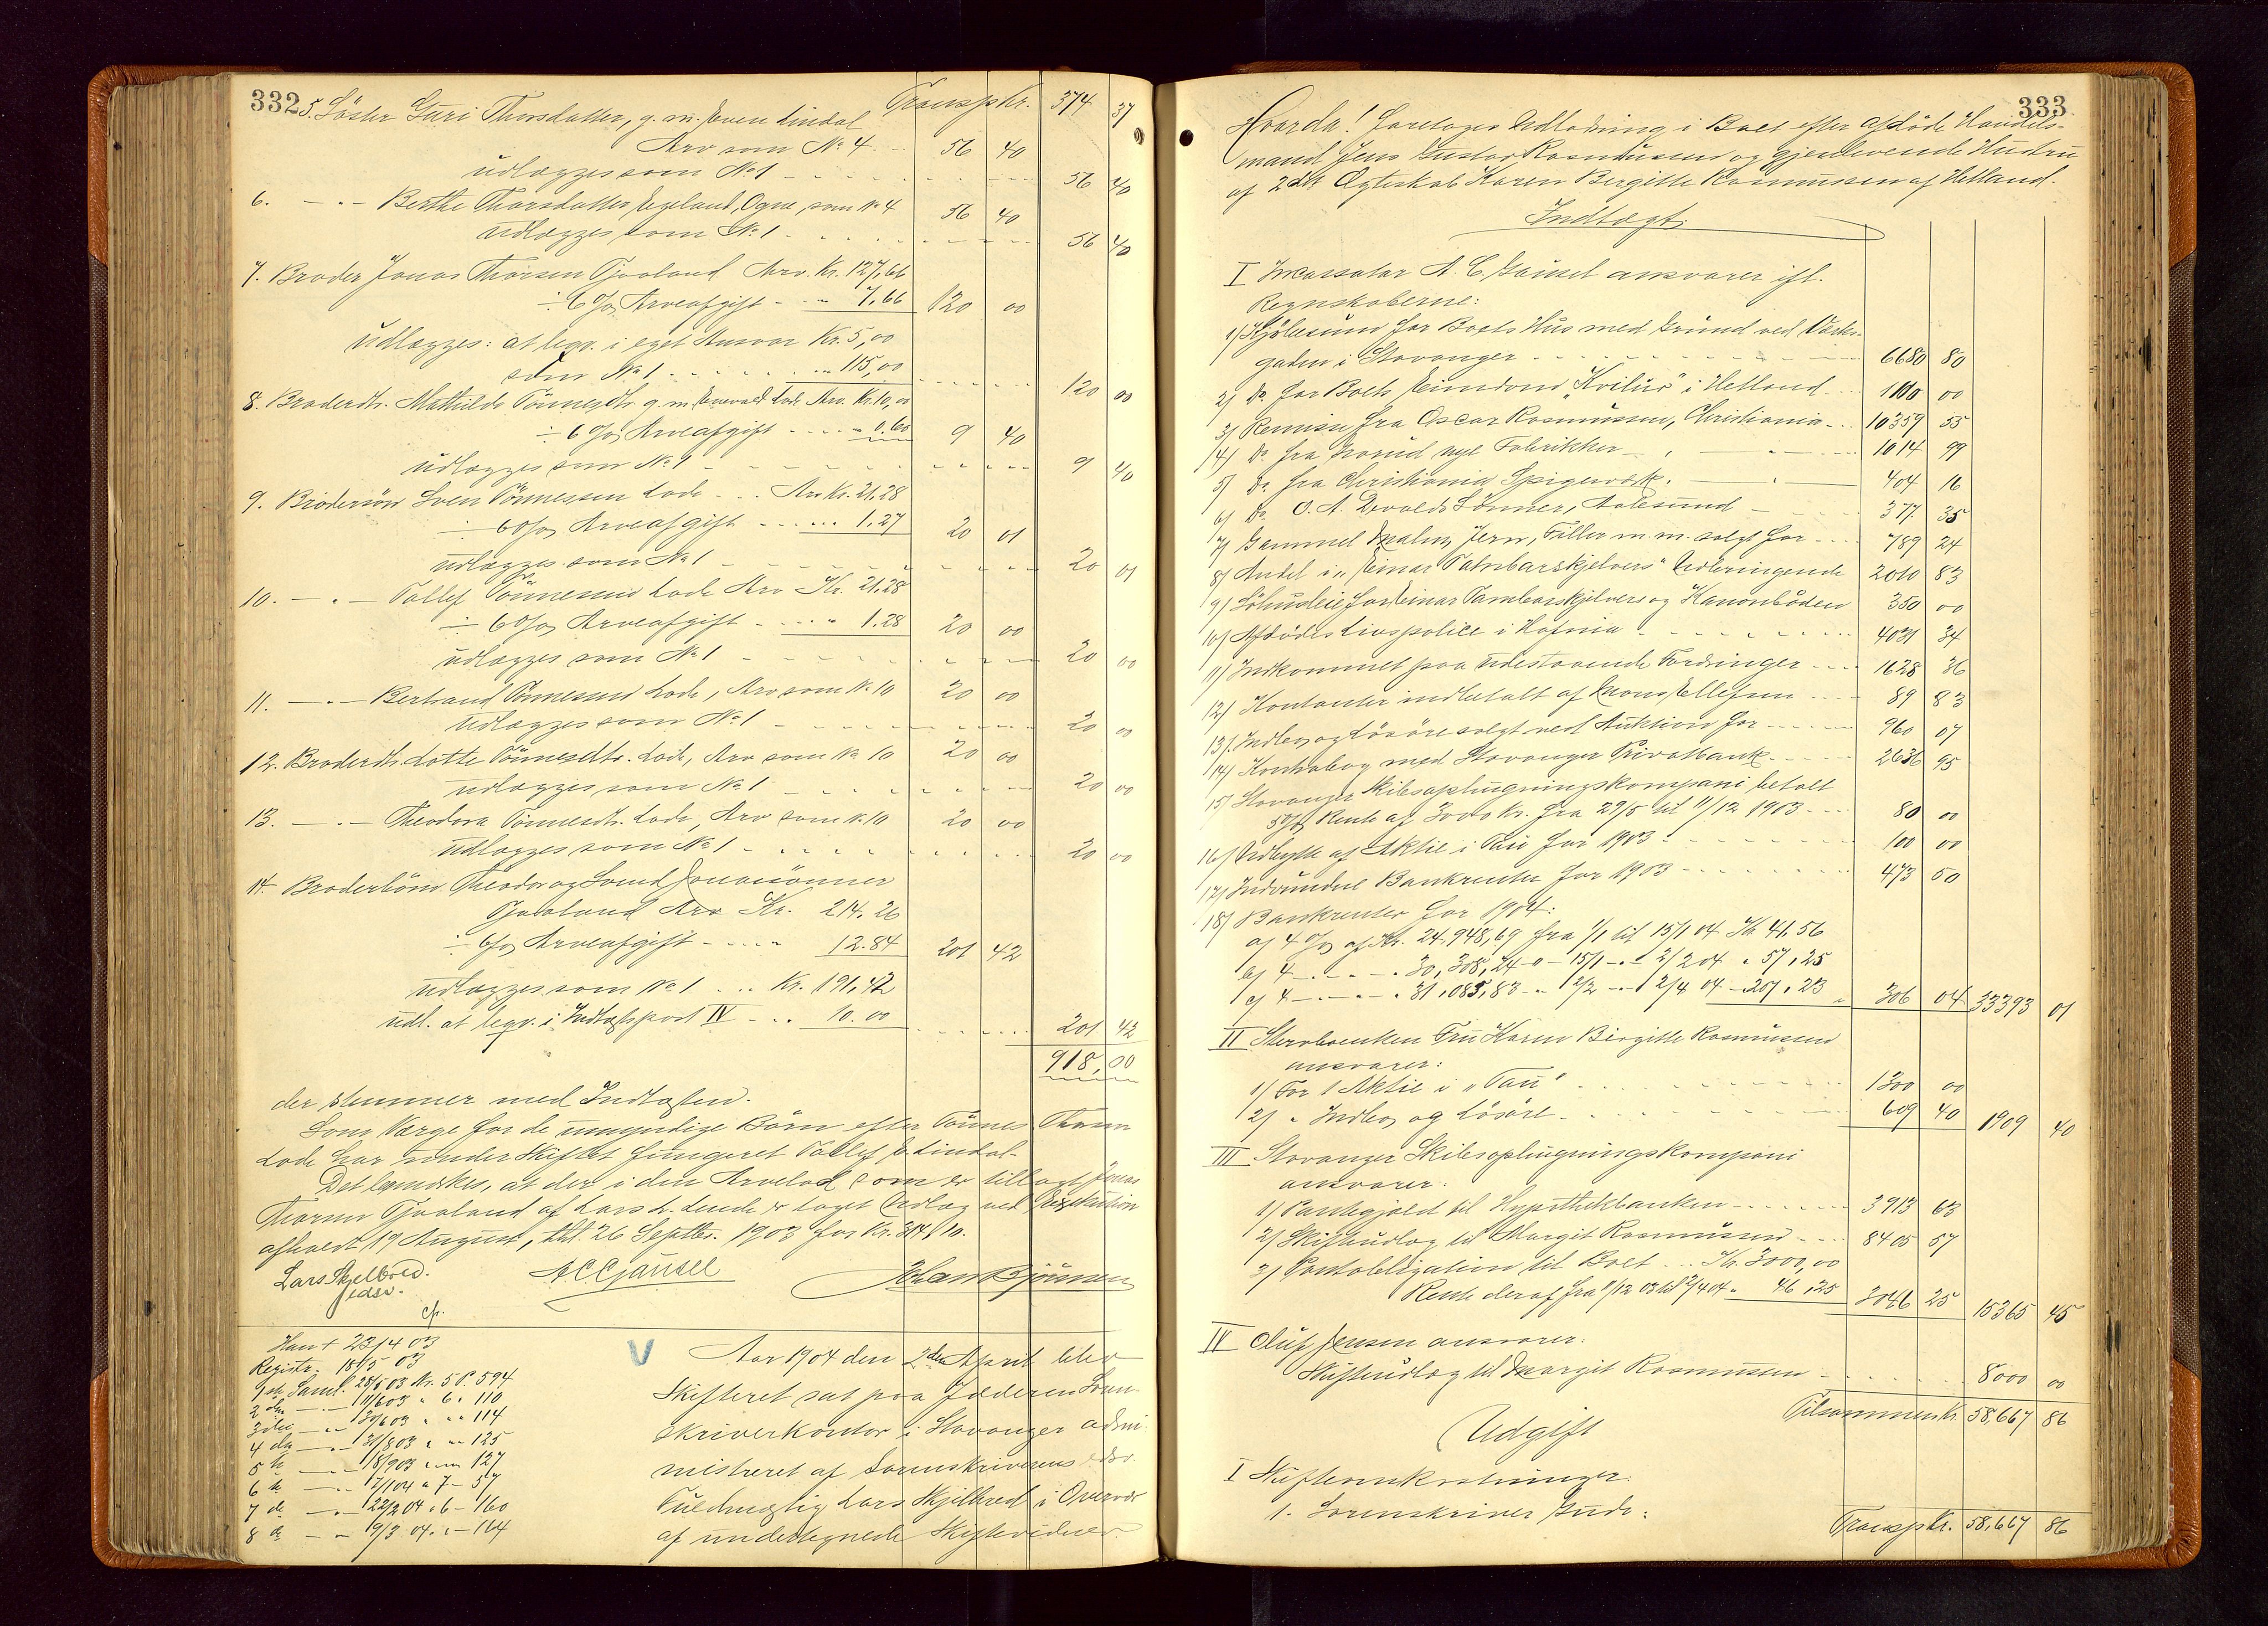 332
Transp Kr. 374 37
5. Söster Guri Thorsdatter, g. m. Even Lindal
Arv som No 4 56 40
udlægges som No 1 56 40
6. — " — Berthe Thorsdatter Egeland, Ogne, som No 4 56 40
udlægges som No 1 56 40
7. Broder Jonas Thorsen Tjaaland Arv. Kr. 127,66
÷ 6 % Arveafgift - - " 7,66 120 00
udlægges: at legv. i eget Ansvar Kr. 5,00
som No 1 - - - " 115,00 120 00
8. Broderdtr. Mathilde Tönnesdtr. g. m. Enevald Lode Arv. Kr. 10,00
÷ 6 % Arveafgift - - - " 0.60 9 40
udlægges som No 1 9 40
9. Brodersön Sven Tönnessen Lode - - Arv Kr. 21.28
÷ 6 % Arveafgift - - - " 1.27 20 01
udlægges som No 1 20 01
10. — " — Tollef Tönnessen Lode Arv Kr. 21,28
÷ 6 % Arveafgift - - - " 1.28 20 00
udlægges som No 1 20 00
11. — " — Bertrand Tönnessen Lode, Arv som No 10 20 00
udlægges som No 1 20 00
12. Broderdtr. Lotte Tönnesdtr. Lode, Arv som No 10 20 00
udlægges som No 1 20 00
13. — " — Theodora Tönnesdtr. Lode, Arv som No 10 20 00
udlægges som No 1 20 00
14. Broderbörn Theodor og Svend Jonassönner
Tjaaland Arv Kr. 214,26
÷ 6 % Arveafgift - - - " 12.84 201 42
udlægges som No 1 - - Kr. 191,42
udl. at legv. i Indtægtspost IV - - " 10.00 201 42
918,00
der stemmer med Indtægten.
Som Værge for de umyndige Börn efter Tönnes Thorsen
Lode har under Skiftet fungeret Tollef E. Lindal.
Det bemærkes, at der i den Arvelod som er tillagt Jonas
Thorsen Tjaaland af Lars L. Lende er taget Udlæg ved Exekution
afholdt 19 August, thl. 26 Septbr. 1903 for Kr. 314,10.
Lars Skjelbred. A C Gjausel Johan Bjönnsen
edsv.
cfr.
Han + 23/4 03
Registr. 18/5 03
1ste Saml. 28/5 03 Nr. 5 P. 594
2den — " — 11/6 03 " 6 " 110
3die — " — 30/6 03 " " " 114
4de — " — 31/8 03 " " " 125
5te — " — 18/9 03 " " " 127
6te — " — 12/1 04 " 7 - 57
7de — " — 22/2 04 " 6 - 160
8de — " — 19/3 04 " " - 164
V
Aar 1904 den 2den April blev
Skifteret sat paa Jæderen Soren-
skriverkontor i Stavanger admi-
nistreret af Sorenskriverens edsv.
Fuldmægtig Lars Skjelbred i Overvær
af undertegnede Skiftevidner.
333
Hvorda! foretoges Udlodning i Boet efter afdöde Handels-
mand Jens Gustav Rasmussen og gjenlevende Hustru
af 2det Ægteskab Karen Bergitte Rasmussen af Hetland.
Indtægt:
I Incassator A. C. Gausel ansvarer ifl.
Regnskaberne:
1) Kjöbesum for Boets Hus med Grund ved Værks-
gaden i Stavanger 6680 80
2) Do for Boets Eiendom "Kvilus" i Hetland 1100 00
3) Remisse fra Oscar Rasmussen, Christiania 10359 55
4) Do fra Grorud nye Fabrikker 1014 99
5) Do fra Christiania Spigerværk 404 16
6) Do O. A. Devolds Sönner, Aalesund 377 35
7) Gammel Malm, Jern, Filler m. m. solgt for 789 24
8) Andel i "Einar Tambarskjelvers" Udbringende 2010 83
9) Söhusleie for Einar Tambarskjelver og Kanonbåden 350 00
10) Afdödes Livspolice i Hafnia 4031 34
11) Indkommet paa udestaaende Fordringer 1628 36
12) Kontanter indbetalt af Mons Ellefsen 89 83
13) Indbo og Lösöre solgt ved Auktion for 960 07
14) Kontrabog med Stavanger Privatbank 2636 95
15) Stavanger Skibsophugningskompani betalt
5% Rente af 3000 Kr. fra 29/5 til 11/12 1903 80 00
16) Udbytte af Aktie i Tau for 1903 100 00
17) Indvundne Bankrenter for 1903 473 50
18) Bankrenter for 1904:
a) 4 % af Kr. 24,948,69 fra 1/1 til 15/1 04 Kr. 41,56
b) 4 - - - 30,308,24 " - 15/1 - " 2/2 04 " 57,25
c) 4 - - - 31,085,83 - " 2/2 - " 2/4 04 " 207,23 306 04 33393 01
II Stervboenken Fru Karen Birgitte Rasmussen
ansvarer:
1) For 1 Aktie i "Tau" 1300 00
2) " Indbo og Lösöre 609 40 1909 40
III Stavanger Skibsophugningskompani
ansvarer:
1) Pantegjæld til Hypothekbanken 3913 63
2) Skifteudlæg til Margit Rasmussen 8405 57
3) Pantobligation til Boet - - Kr. 3000,00
Rente deraf fra 11/12 03 til 2/4 04 " 46,25 3046 25 15365 45
IV Oluf Jensen ansvarer:
Skifteudlæg til Margit Rasmussen 8000 00
Tilsammen Kr. 58,667 86
Udgift
I Skifteomkostninger:
1. Sorenskriver Gude:
Transp Kr. 58,667 86